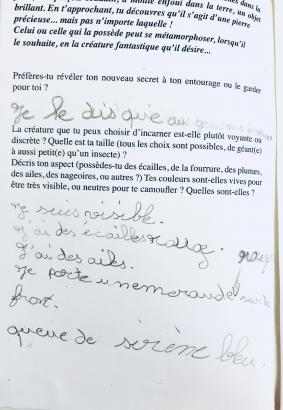 brillant. En t'approchant, tu découvres qu'il s'agit d'une pierre
précieuse... mais pas n'importe laquelle !
Celui ou celle qui la possède peut se métamorphoser, lorsqu'il
le souhaite, en la créature fantastique qu'il désire...
Préfères-tu révéler ton nouveau secret à ton entourage ou le garder
pour toi ?
Je le dis que au
La créature que tu peux choisir d'incarner est-elle plutôt voyante ou
discrète ? Quelle est ta taille (tous les choix sont possibles, de géant(e)
à aussi petit(e) qu'un insecte) ?
Décris ton aspect (possèdes-tu des écailles, de la fourrure, des plumes,
des ailes, des nageoires, ou autres ?) Tes couleurs sont-elles vives pour
être très visible, ou neutres pour te camoufler ? Quelles sont-elles ?
Je suis visible.
J'ai des écailles
J'ai des ailes.
Je porte un emeraude sur le
front.
queue de sirène bleu.